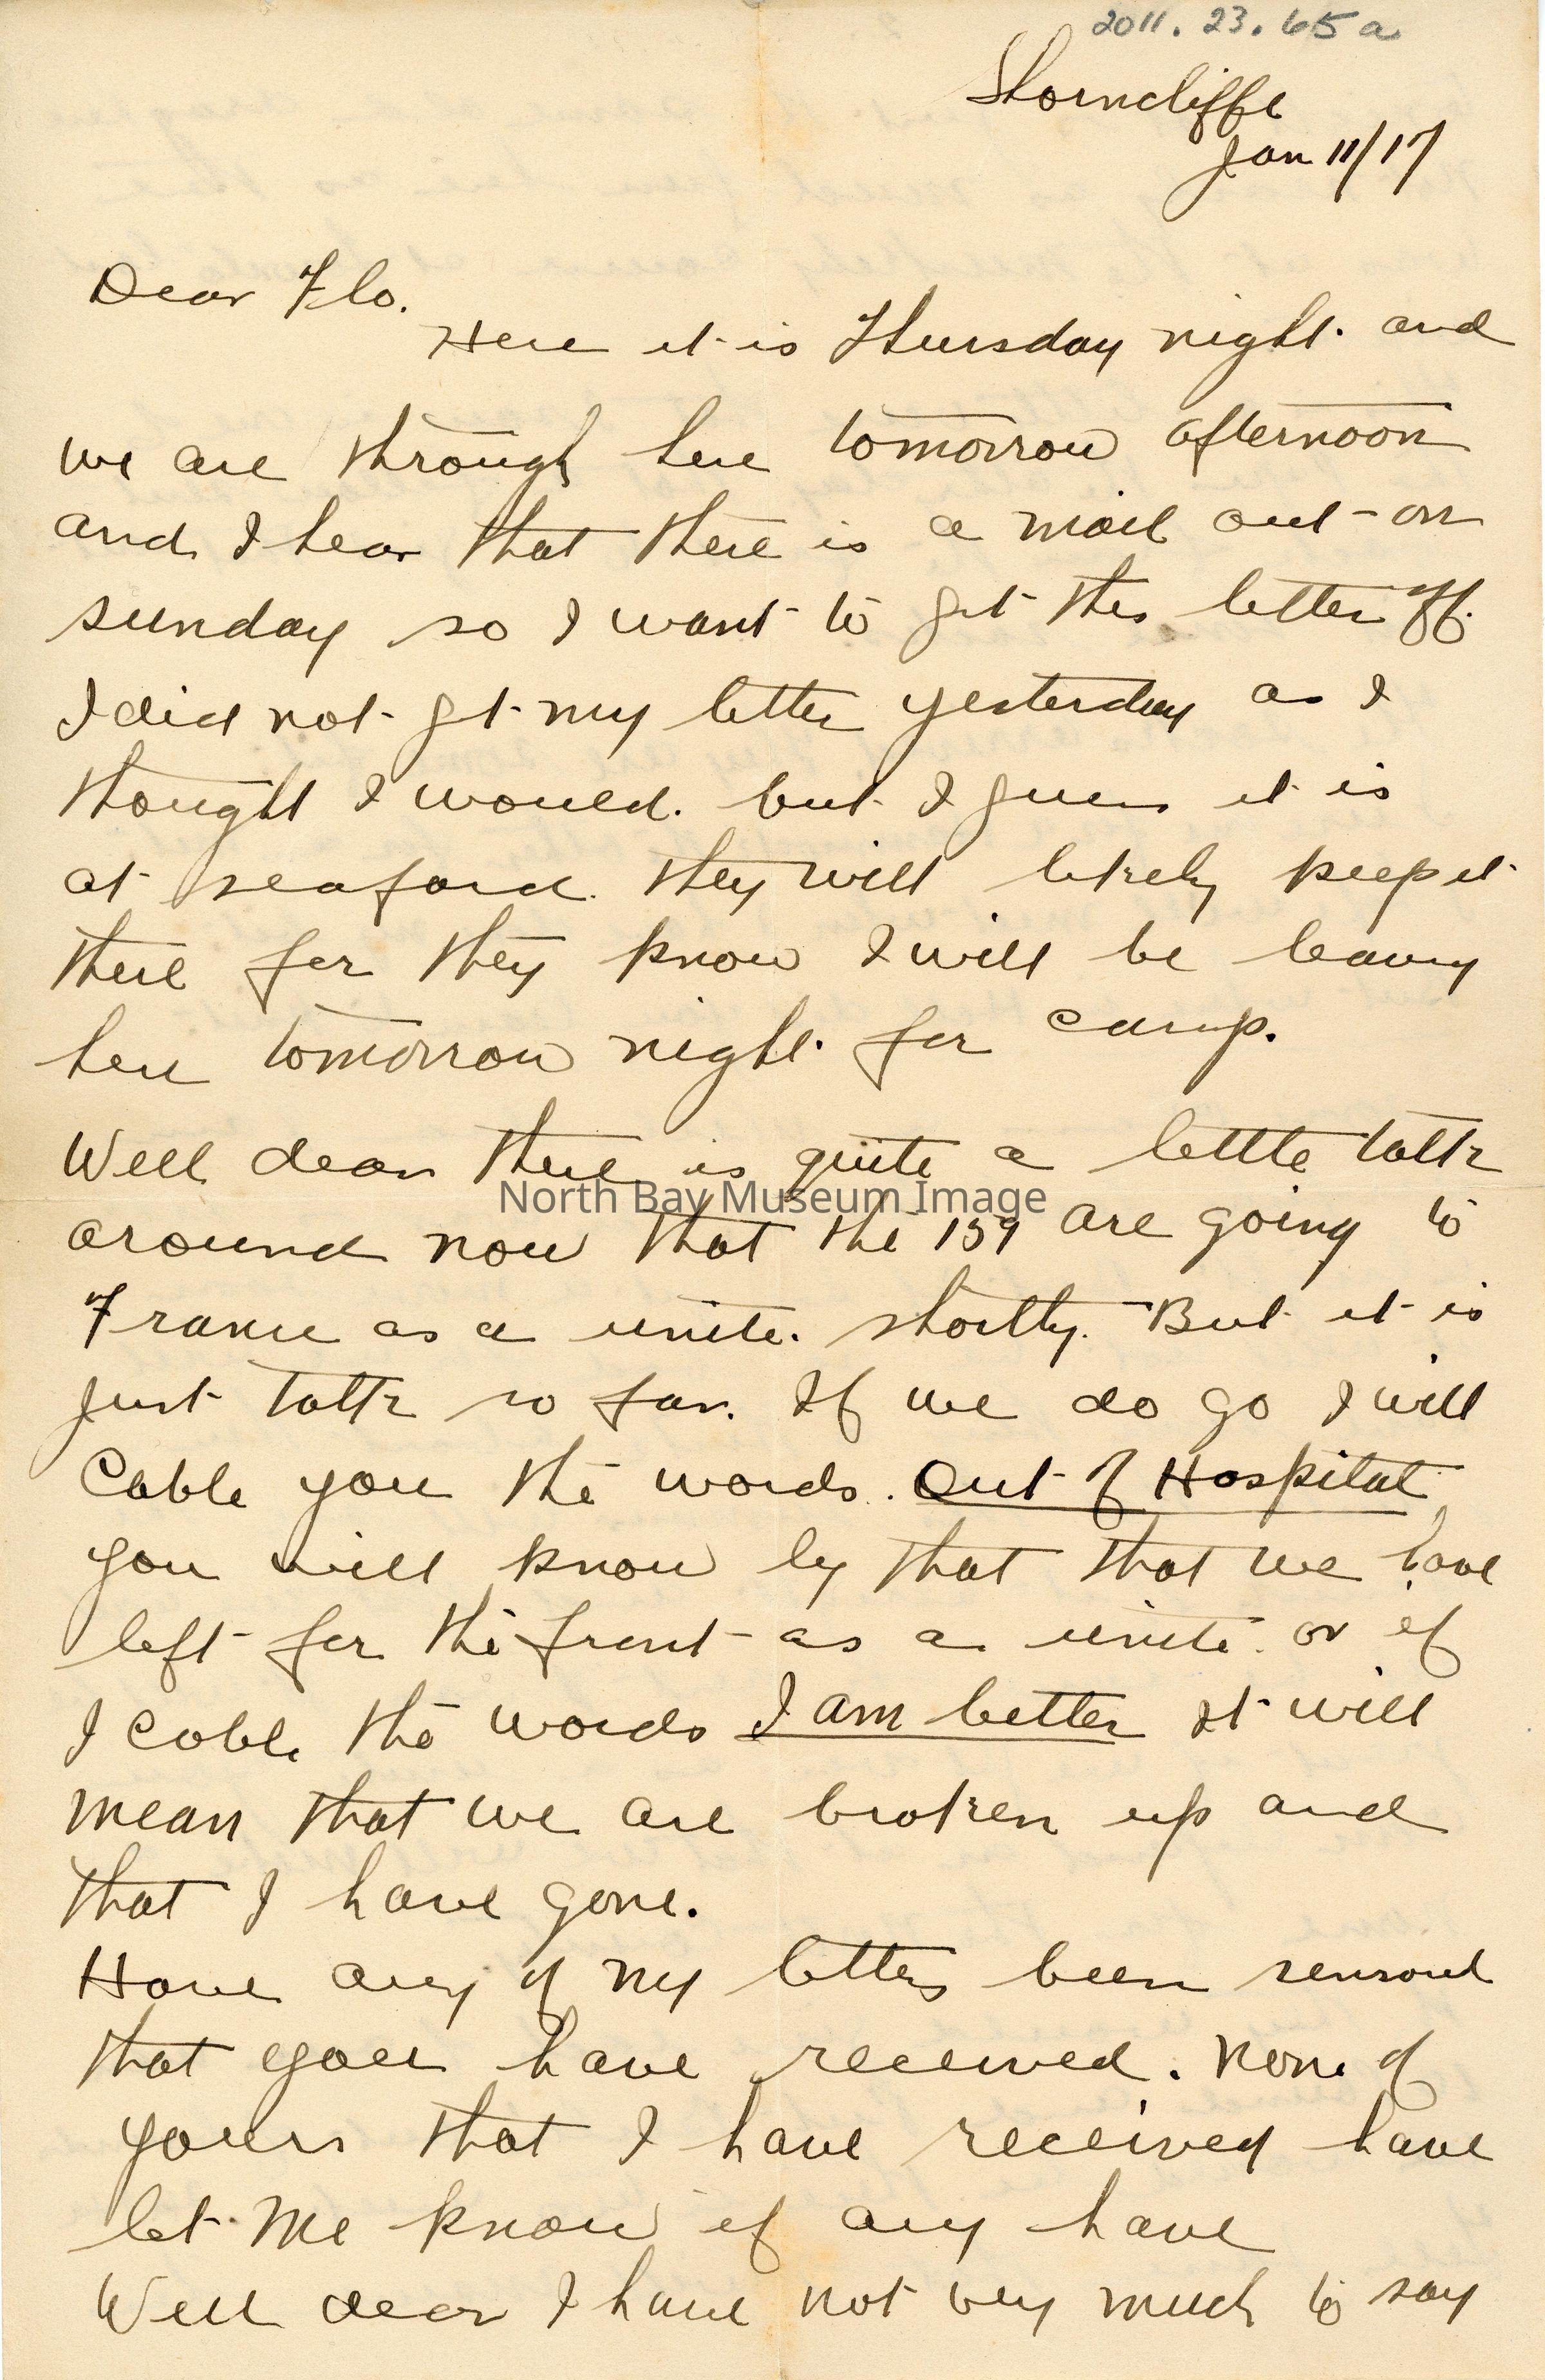 2011.23.65a
Shorncliffe
Jan 11/17
Dear Flo.
Here it is Thursday night and
we are through here tomorrow afternoon
and I hear that there is a mail out on
sunday so I want to get this letter off.
I did not get my letter yesterday as I
thought I would. but I guess it is
at seaford. they will likely keep it
there for they know I will be leaving
here tomorrow night for camp.
Well dear there is quite a little talk
North Bay Museum Image
around now that the 159 are going to
France as a unite. shortly. But it is
just talk so far. If we do go I will
Cable you the words. Out of Hospital
you will know by that that we have
left for the front as a unite. or if
I cable the words I am better It will
mean that we are broken up and
that I have gone.
Have any of my letters been sensored
that you have received. None of
yours that I have received have
let me know if any have
Well dear I have not very much to say